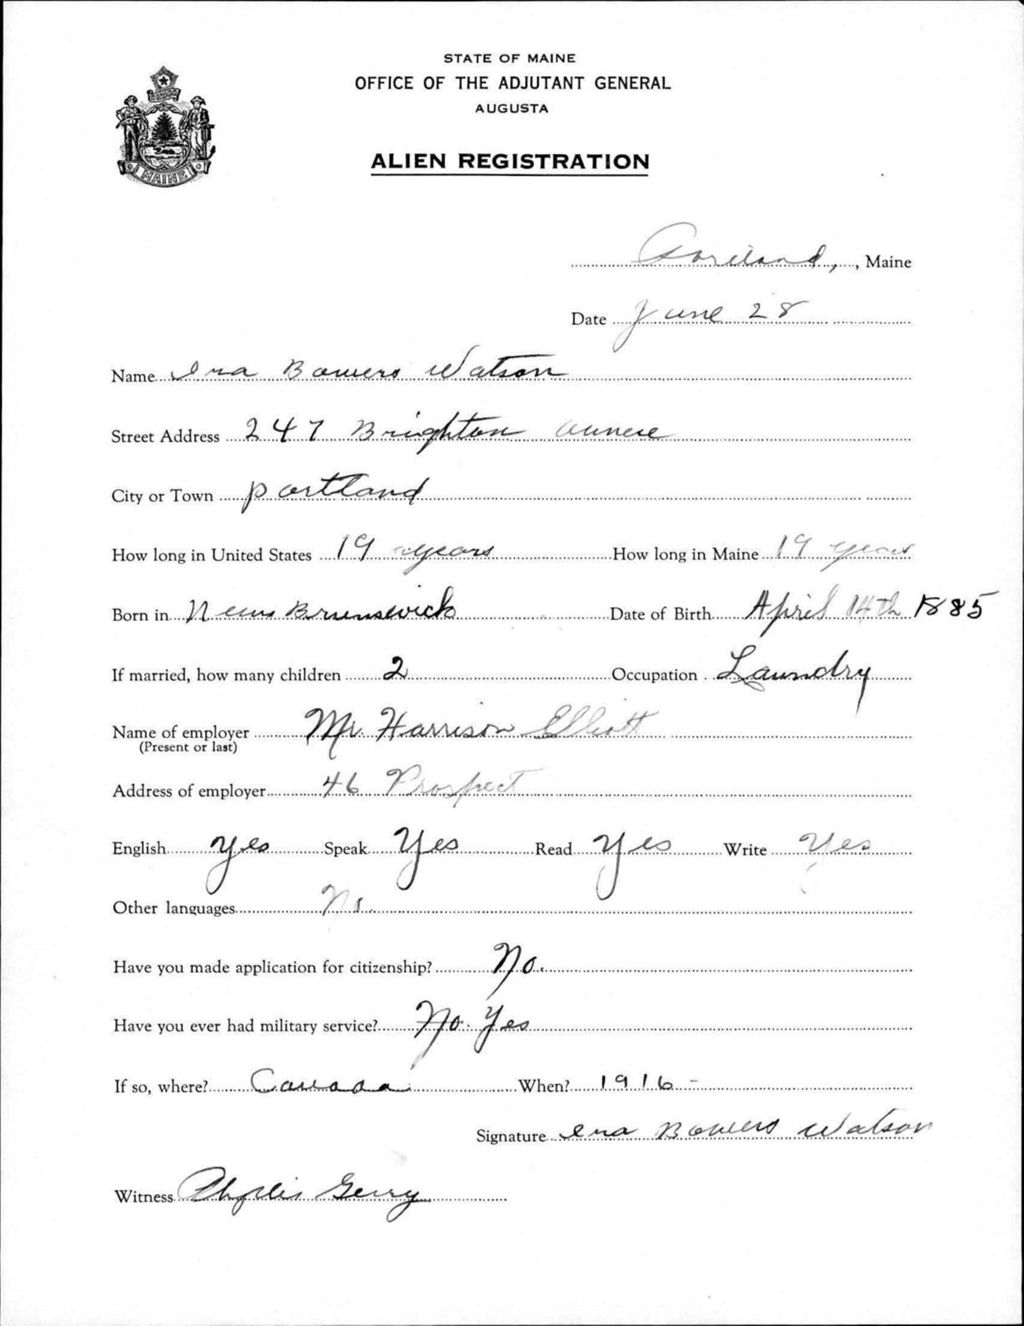 STATE OF MAINE
OFFICE OF THE ADJUTANT GENERAL
AUGUSTA
MAINE
ALIEN REGISTRATION
Portland, , Maine
Date June 28
Name Ira Bowers Watson
Street Address 247 Brighton
City or Town Portland
How long in United States 19 years How long in Maine 19 years
Born in New Brunswick Date of Birth April 14th 1885
If married, how many children 2 Occupation Laundry
Name of employer Mr. Harrison Elliott
(Present or last)
Address of employer 46 Prospect
English Yes Speak Yes Read Yes Write Yes
Other languages No.
Have you made application for citizenship? No.
Have you ever had military service? No. Yes
If so, where? Canada When? 1916 -
Signature Ira Bowers Watson
Witness Phyllis Gerry